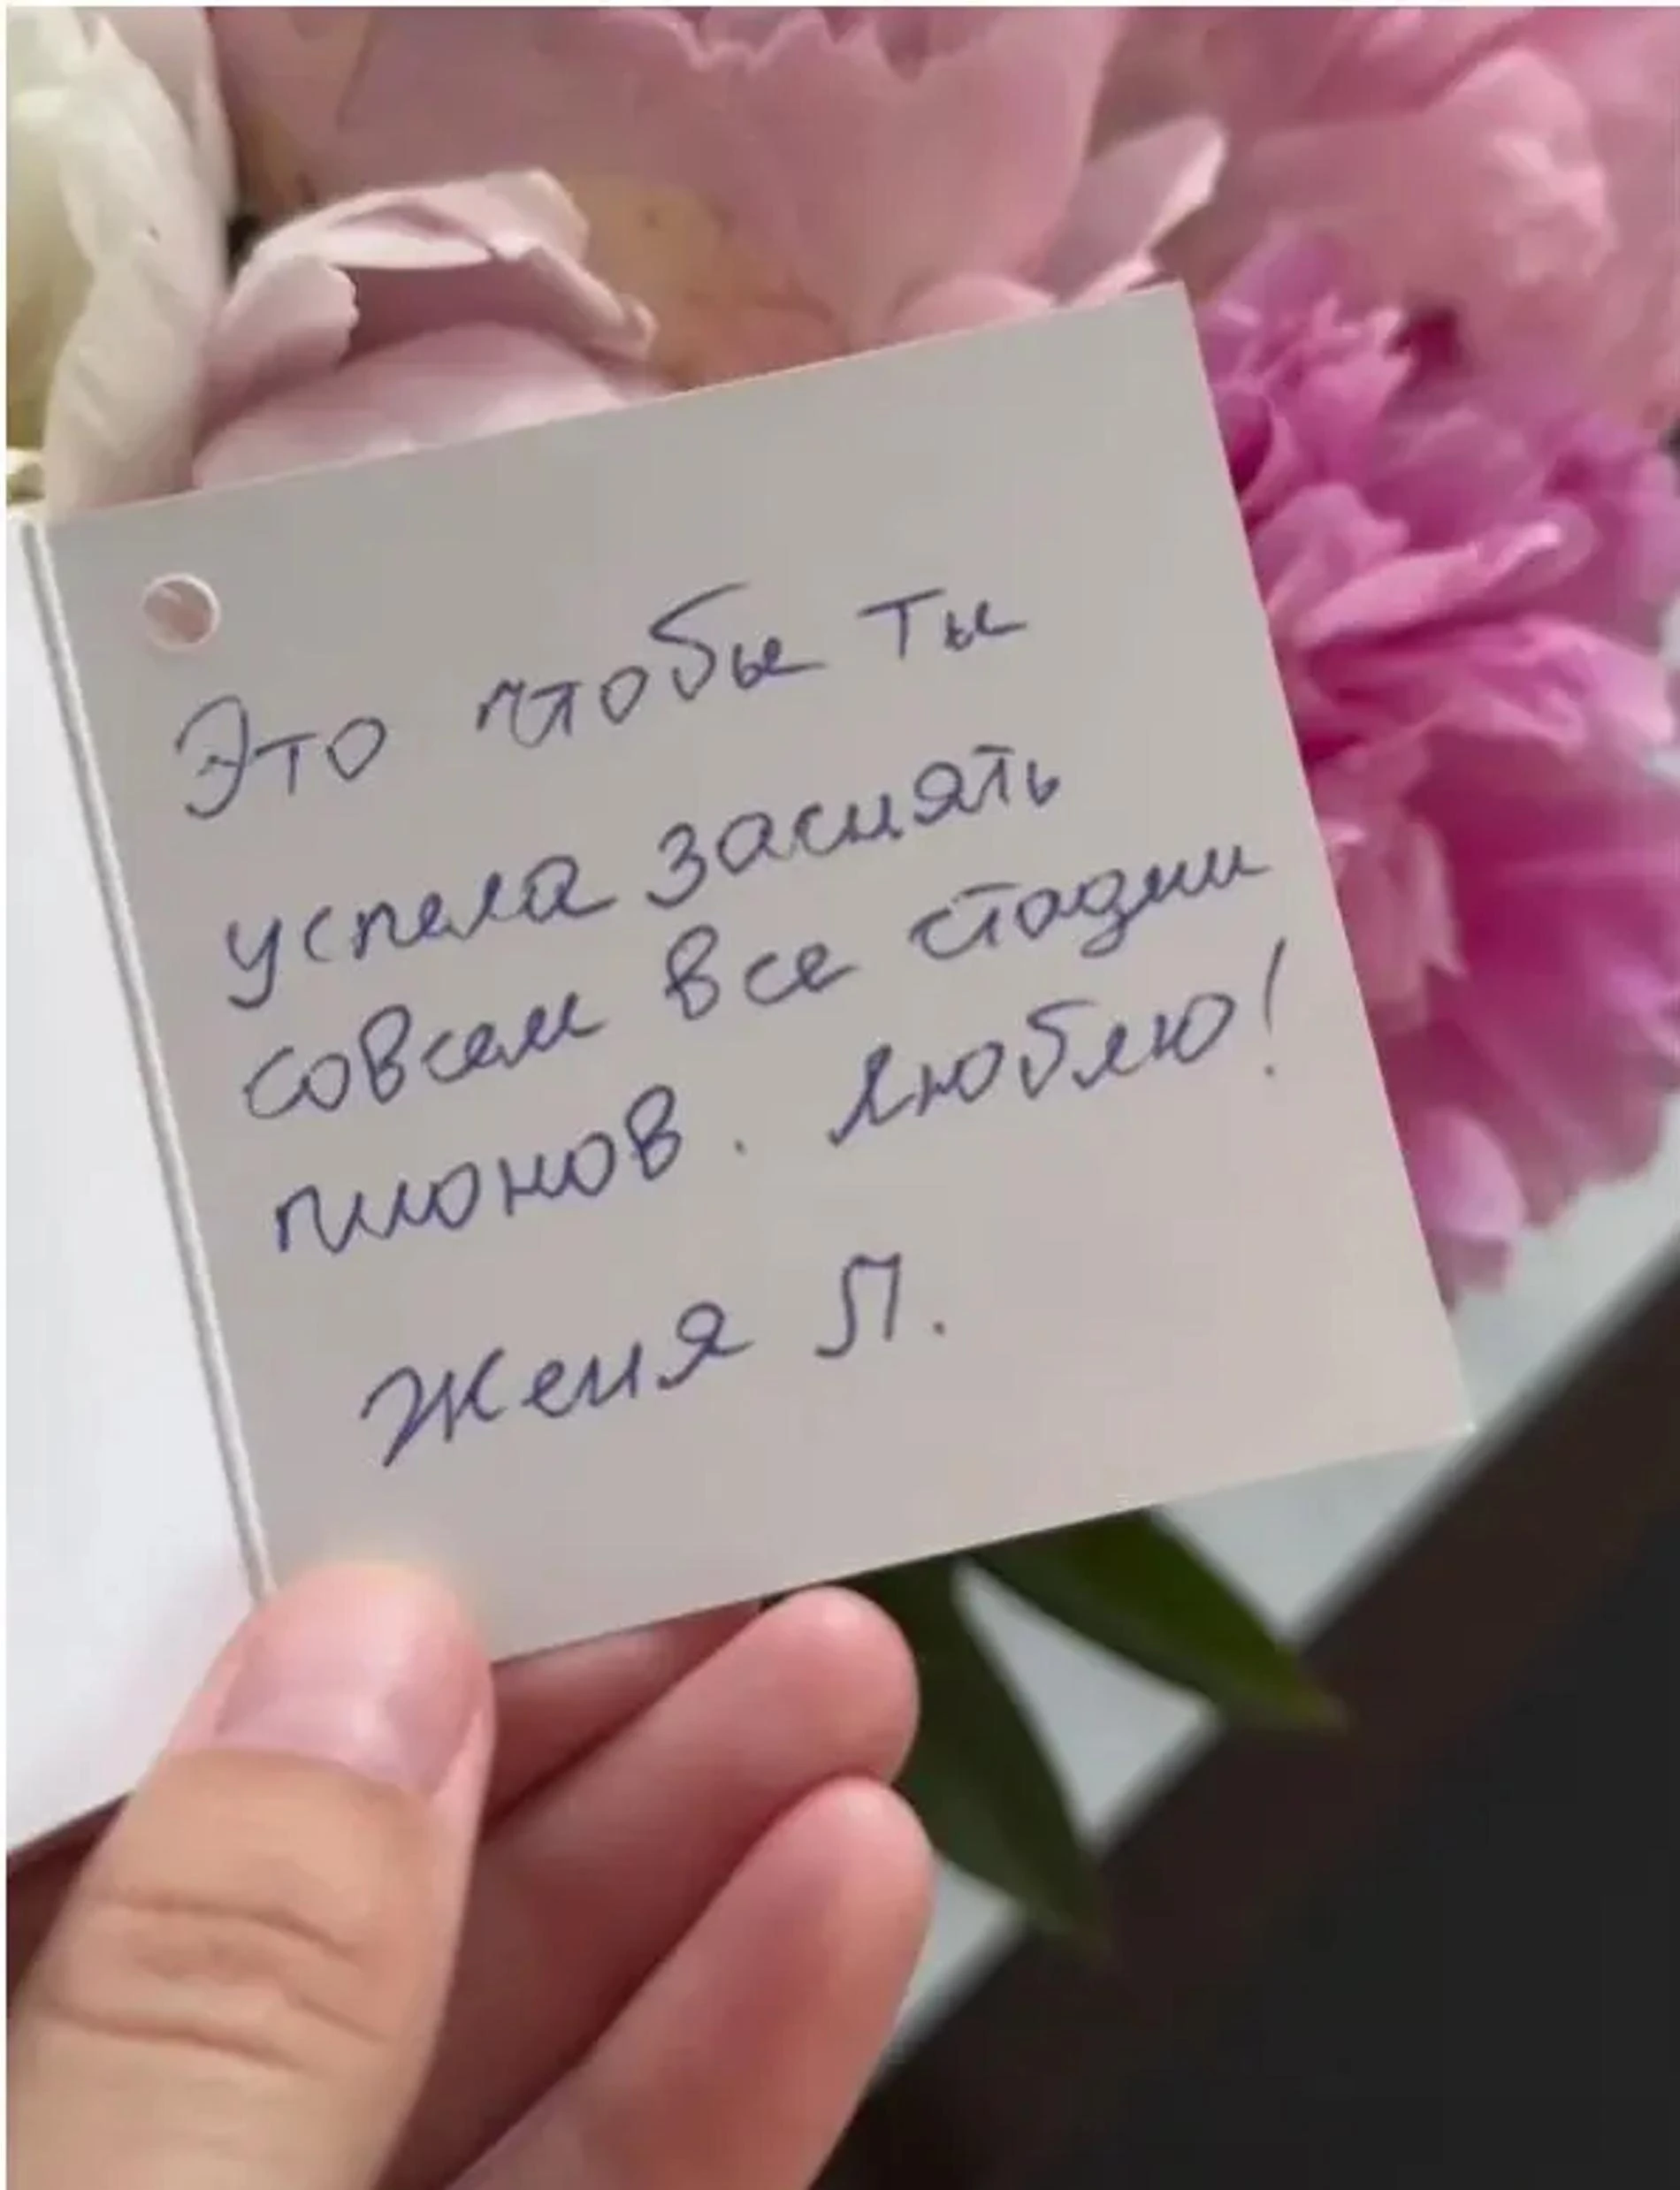 Это чтобы ты
успела заснять
совсем все стадии
пионов. Люблю!
Женя Л.